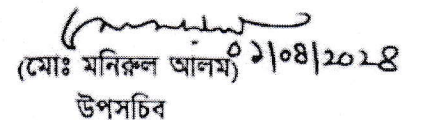 (মোঃ মনিরুল আলম) ০১/০৪/২০২৪
উপসচিব